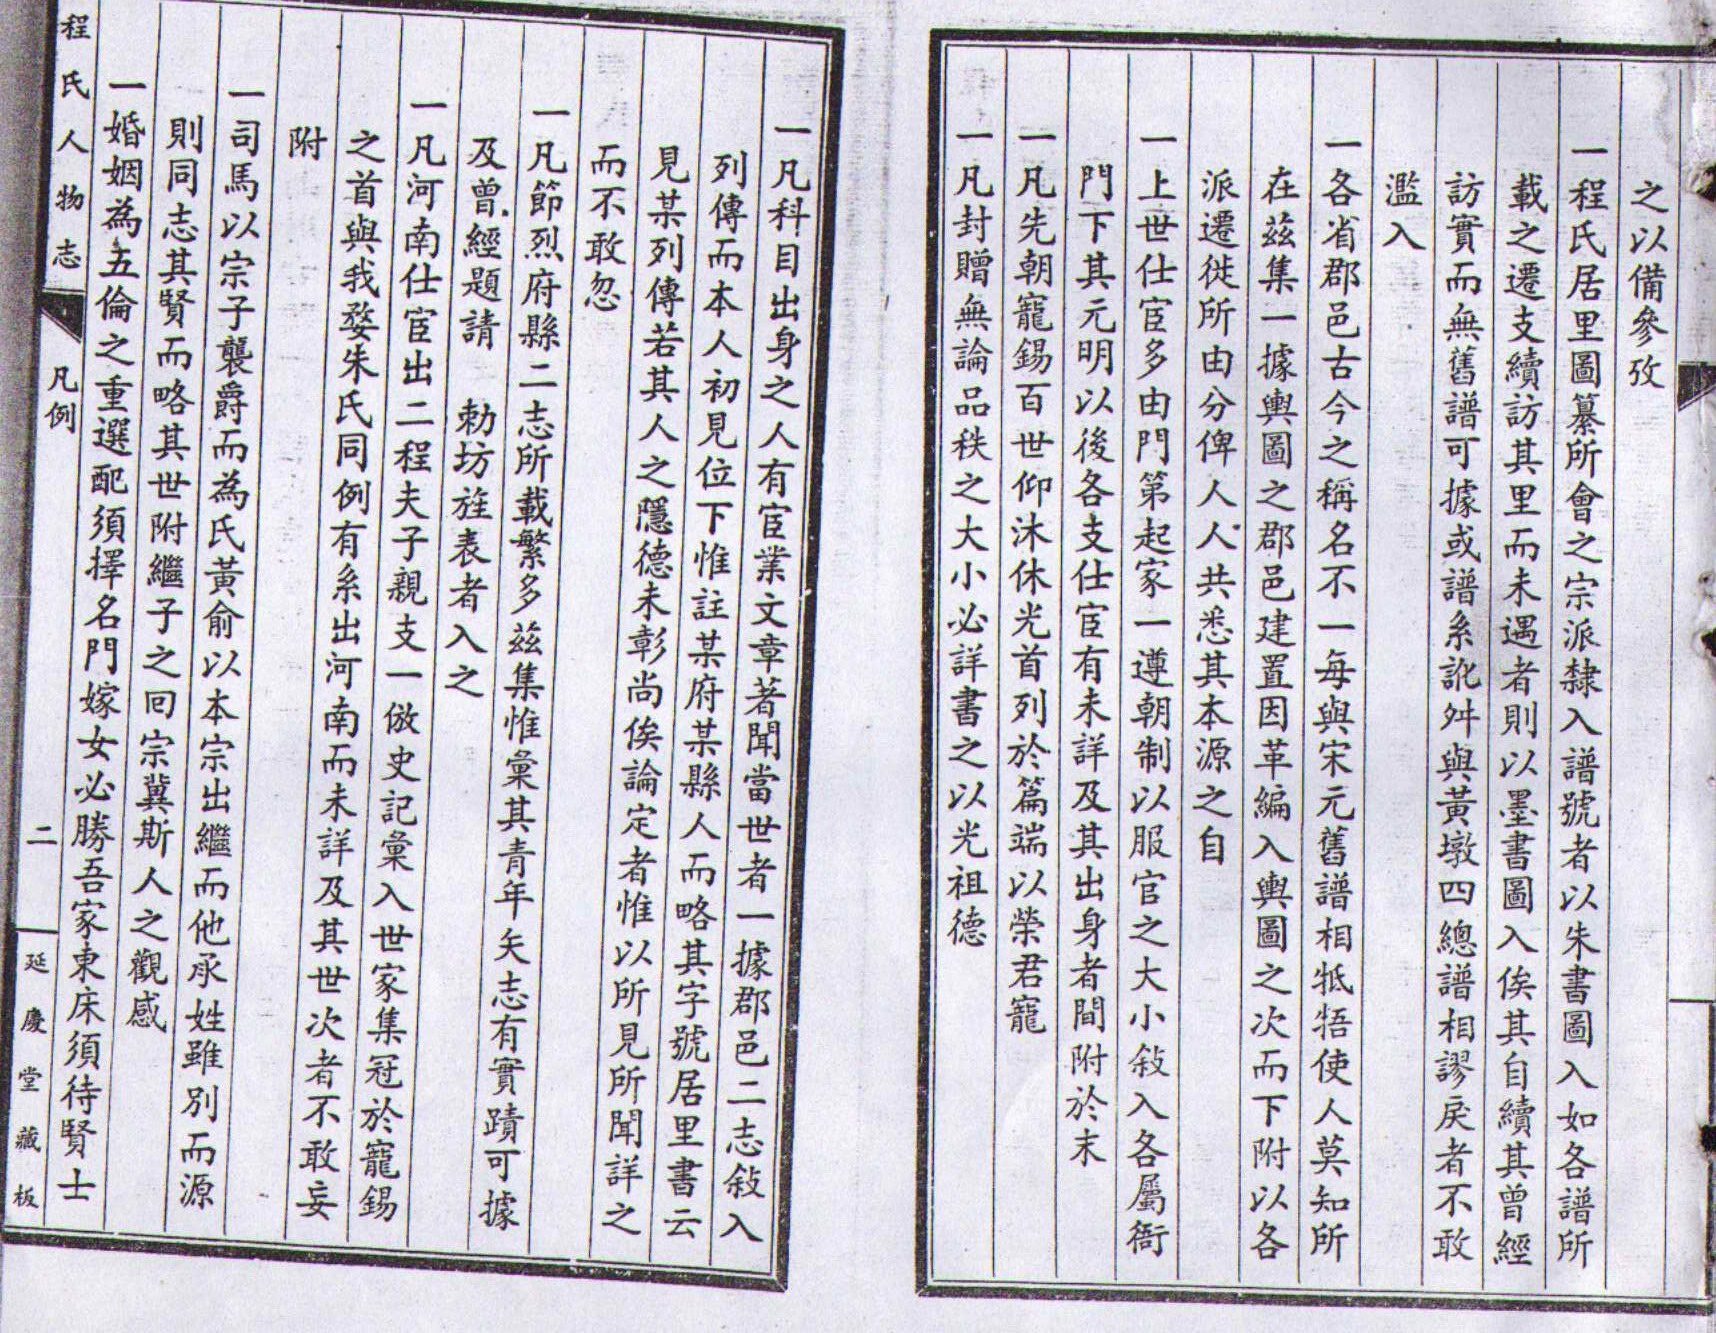 之以備參攷
一程氏居里圖纂所會之宗派隸入譜號者以朱書圖入如各譜所
載之遷支續訪其里而未遇者則以墨書圖入俟其自續其曾經
訪實而無舊譜可據或譜系訛舛與黃墩四總譜相謬戾者不敢
濫入
一各省郡邑古今之稱名不一每與宋元舊譜相牴牾使人莫知所
在茲集一據輿圖之郡邑建置因革編入輿圖之次而下附以各
派遷徙所由分俾人人共悉其本源之自
一上世仕宦多由門第起家一遵朝制以服官之大小敍入各屬衙
門下其元明以後各支仕宦有未詳及其出身者間附於末
一凡先朝寵錫百世仰沐休光首列於篇端以榮君寵
一凡封贈無論品秩之大小必詳書之以光祖德
一凡科目出身之人有宦業文章著聞當世者一據郡邑二志敍入
列傳而本人初見位下惟註某府某縣人而略其字號居里書云
見某列傳若其人之隱德未彰尚俟論定者惟以所見所聞詳之
而不敢忽
一凡節烈府縣二志所載繁多茲集惟彙其青年矢志有實蹟可據
及曾經題請 勅坊旌表者入之
一凡河南仕宦出二程夫子親支一倣史記彙入世家集冠於寵錫
之首與我婺朱氏同例有系出河南而未詳及其世次者不敢妄
附
一司馬以宗子襲爵而為氏黃俞以本宗出繼而他承姓雖別而源
則同志其賢而略其世附繼子之回宗冀斯人之觀感
一婚姻為五倫之重選配須擇名門嫁女必勝吾家東床須待賢士
程氏人物志
凡例
二
延慶堂藏板